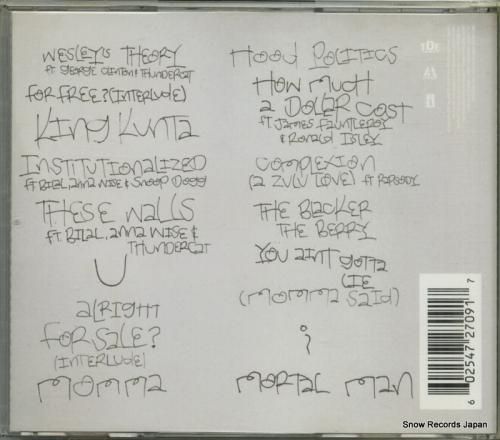 WESLEY'S THEORY
ft. GEORGE CLINTON & THUNDERCAT
FOR FREE? (INTERLUDE)
KING KUNTA
INSTITUTIONALIZED
ft BILAL, ANNA WISE & SNOOP DOGG
THESE WALLS
ft. BILAL, ANNA WISE &
THUNDERCAT
U
ALRIGHT
FOR SALE?
(INTERLUDE)
MOMMA
HOOD POLITICS
HOW MUCH
A DOLLAR COST
ft. JAMES FAUNTLEROY
& RONALD ISLEY
COMPLEXION
(A ZULU LOVE) ft RAPSODY
THE BLACKER
THE BERRY
YOU AINT GOTTA
LIE
(MOMMA SAID)
i
MORTAL MAN
TDE
6 02547 27091 7
Snow Records Japan